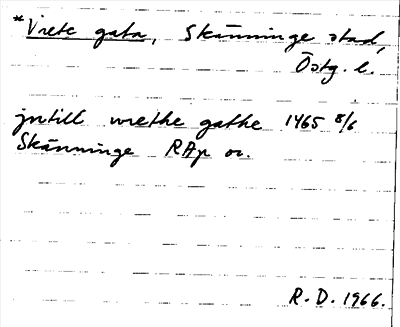 *Vrete gata, Skänninge stad,
Östg. l.
jntill wrethe gathe 1465 8/6
Skänninge RAp or.
R. D. 1966.